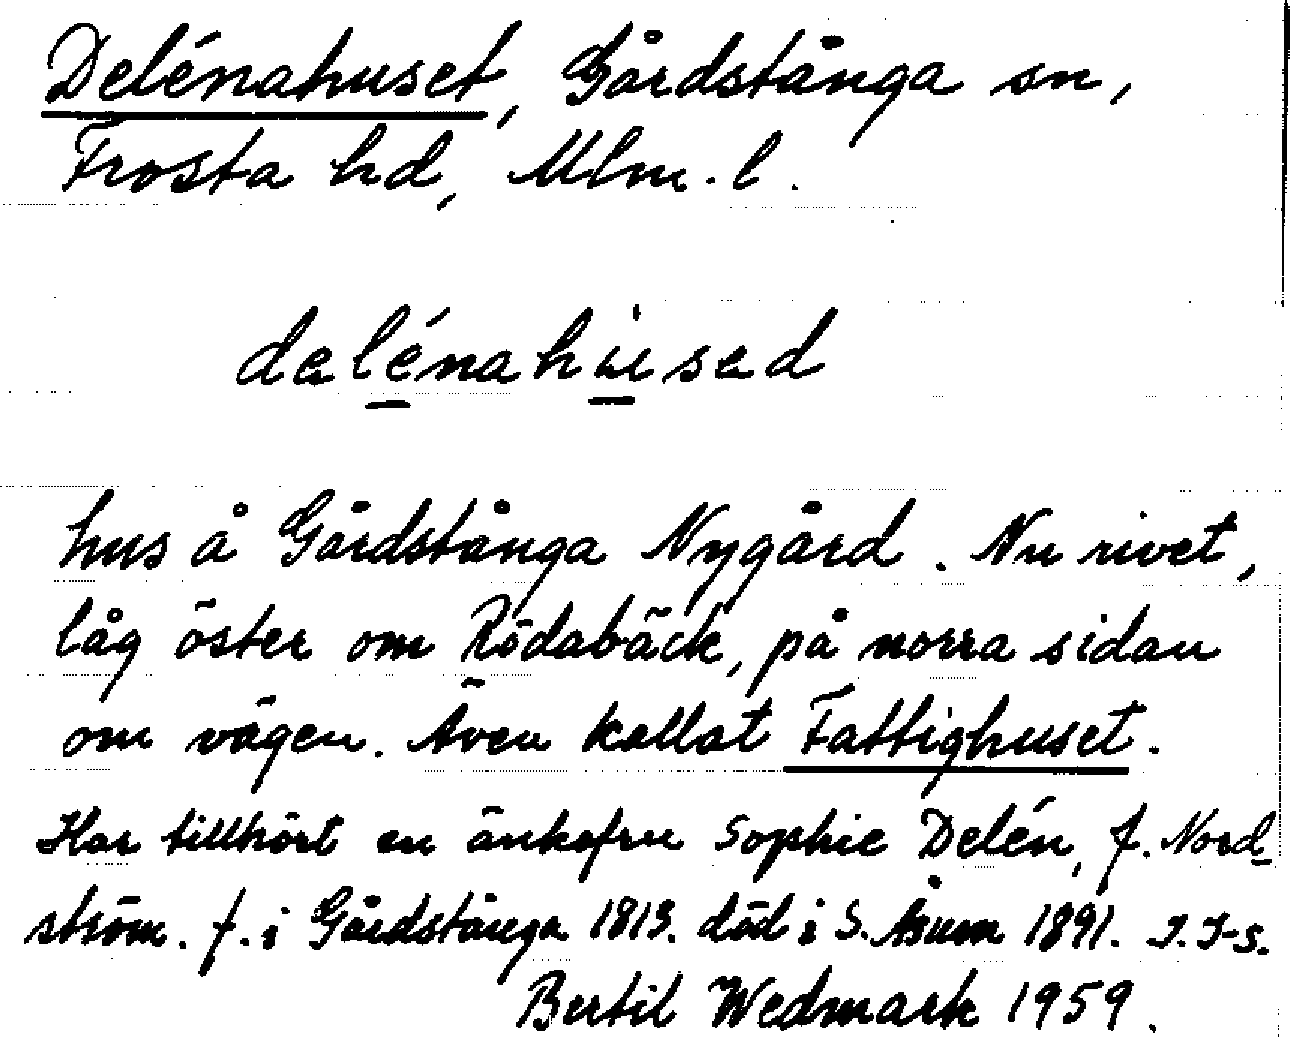 Delénahuset, Gårdstånga sn,
Frosta hd, Mlm. l.
dalénahused
hus å Gårdstånga Nygård. Nu rivet,
låg öster om Rödabäck, på norra sidan
om vägen. Även kallat Fattighuset.
Har tillhört en änkefru Sophie Delén, f. Nord-
ström. f. i Gårdstånga 1813. död i S. Åsum 1891. I. I-s.
Bertil Wedmark 1959.